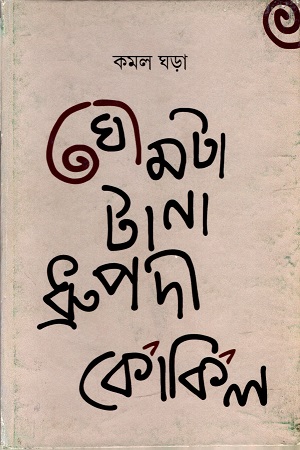 কমল ঘড়া
ঘোমটা
টানা
ধ্রুপদী
কোকিল